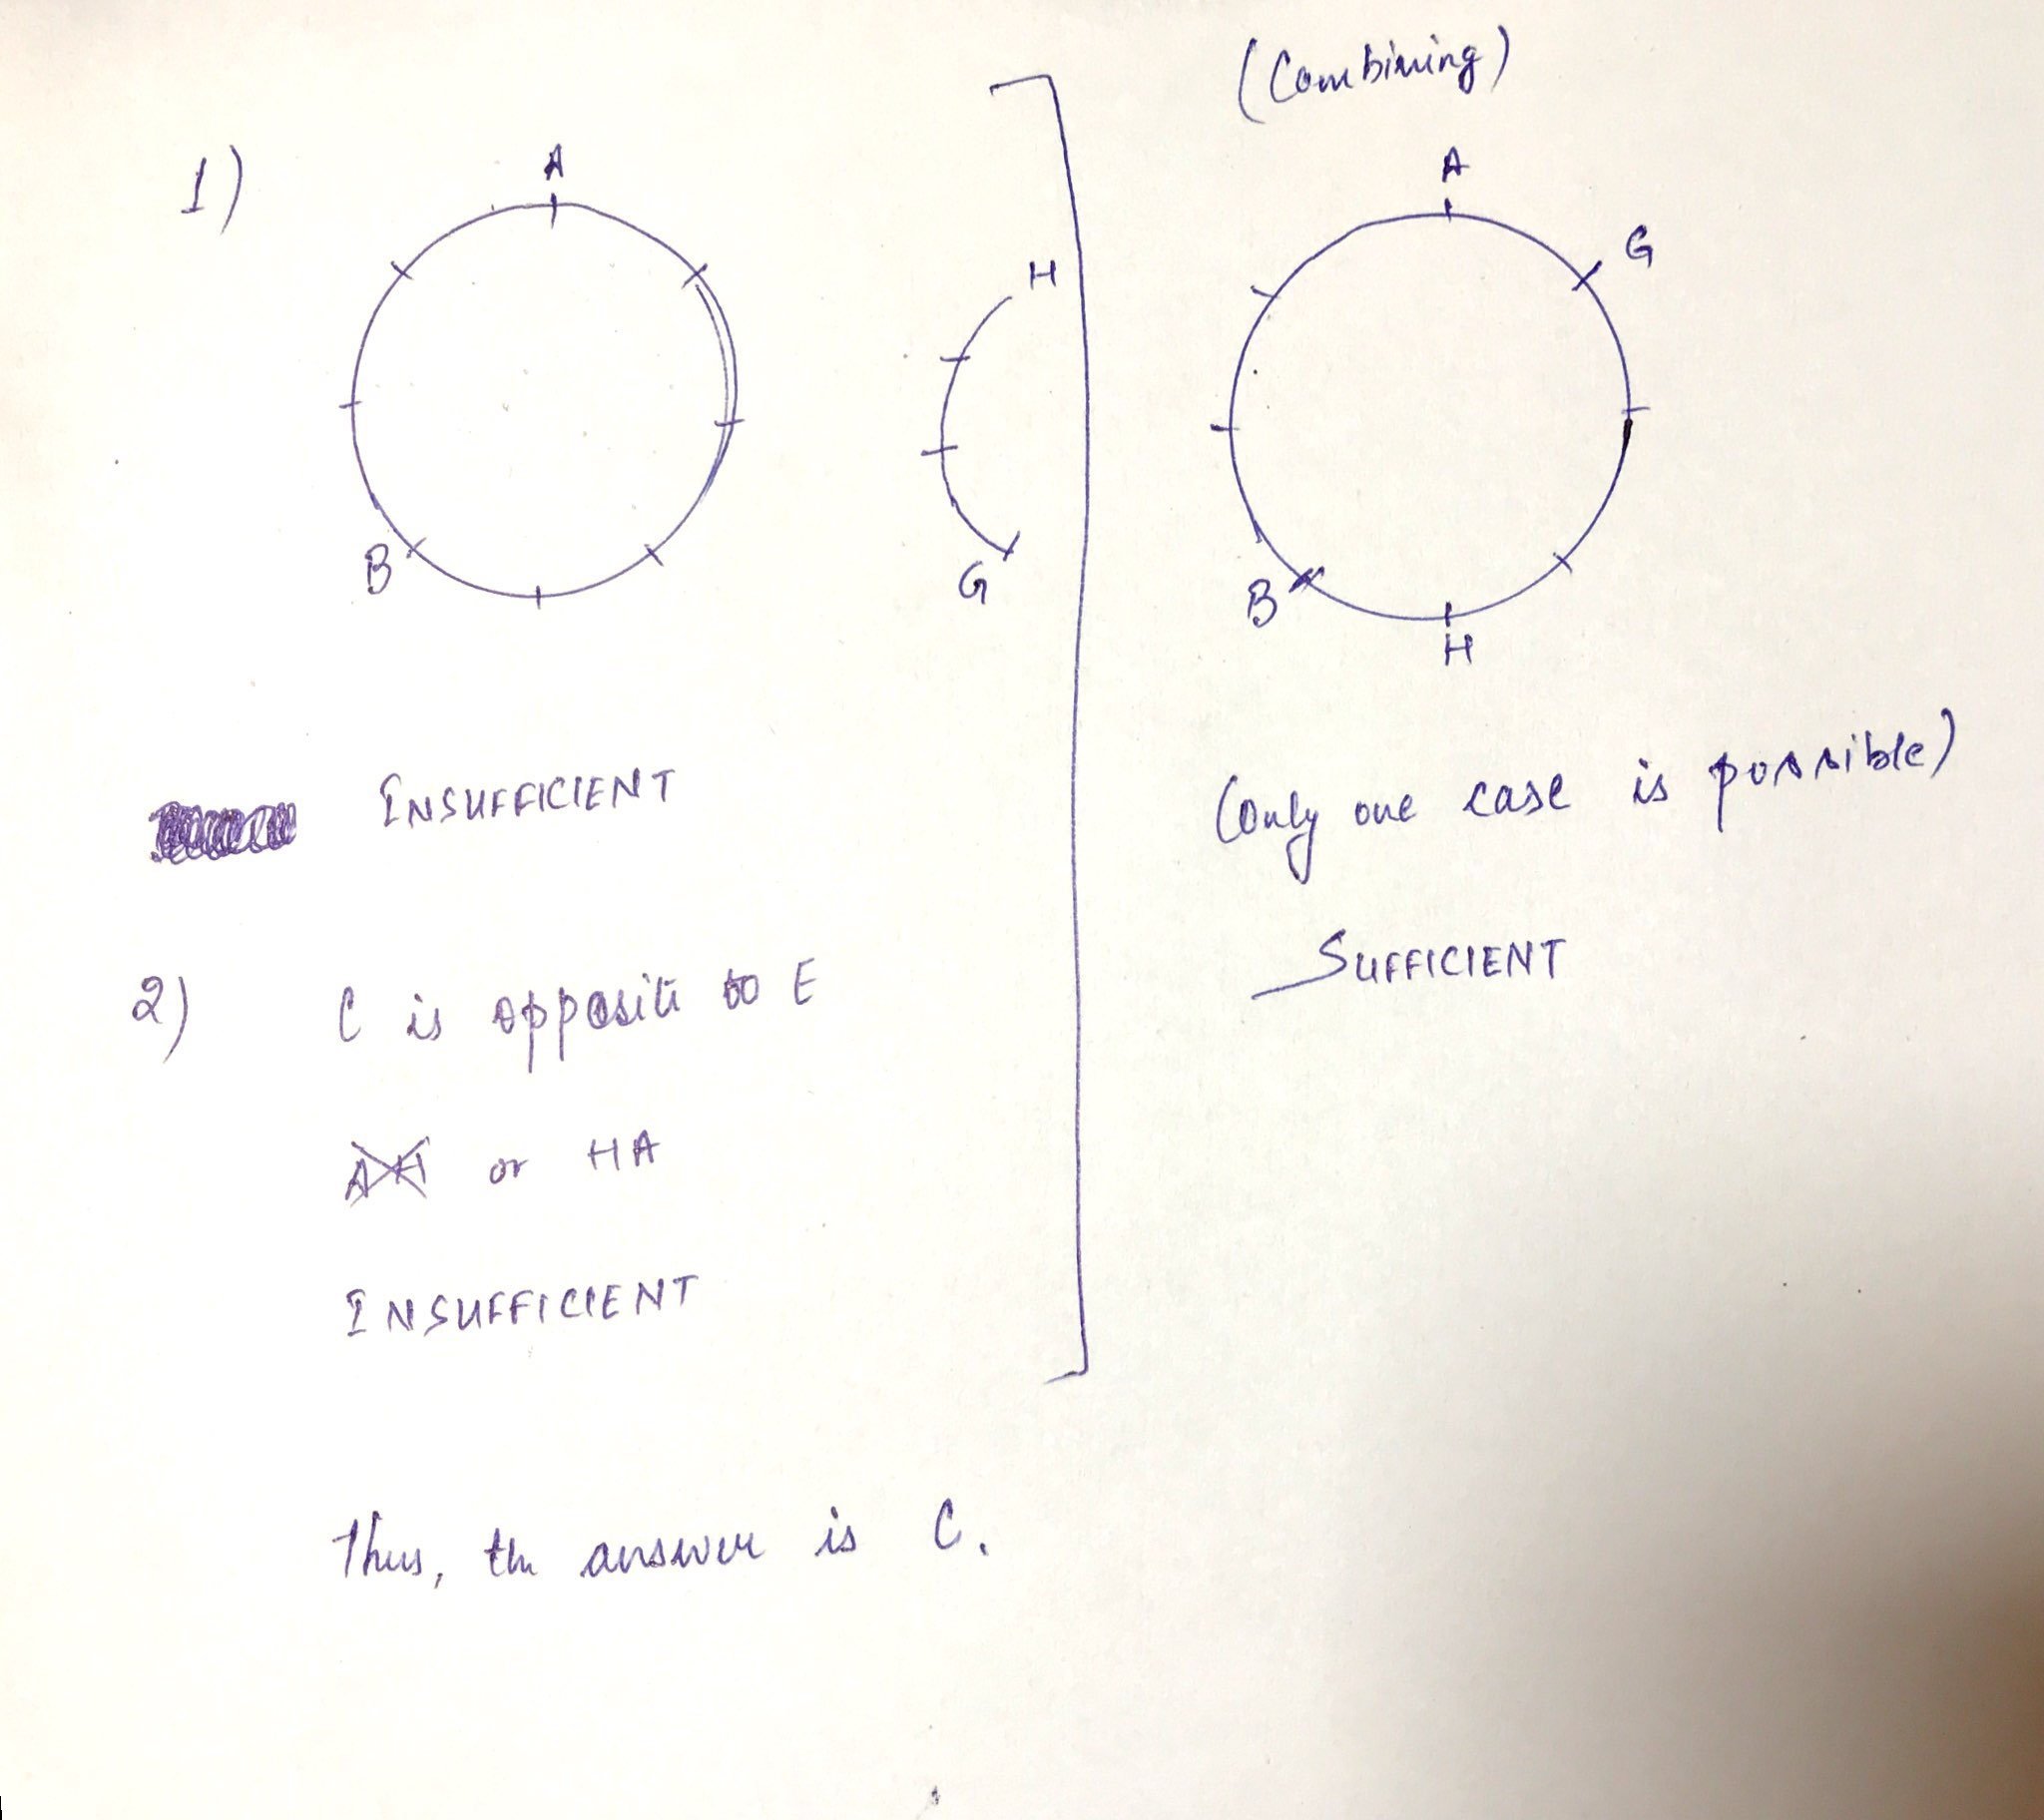 1)
A
B
H
G
INSUFFICIENT
2) C is opposite to E
AH or HA
INSUFFICIENT
(Combining)
A
G
B
H
(only one case is possible)
SUFFICIENT
Thus, the answer is C.